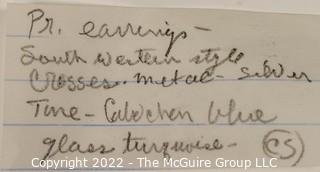 Pr. earrings -
South western style
Crosses. metal - silver
Tone - Cabochen blue
glass turquoise - CS
Copyright 2022 - The McGuire Group LLC